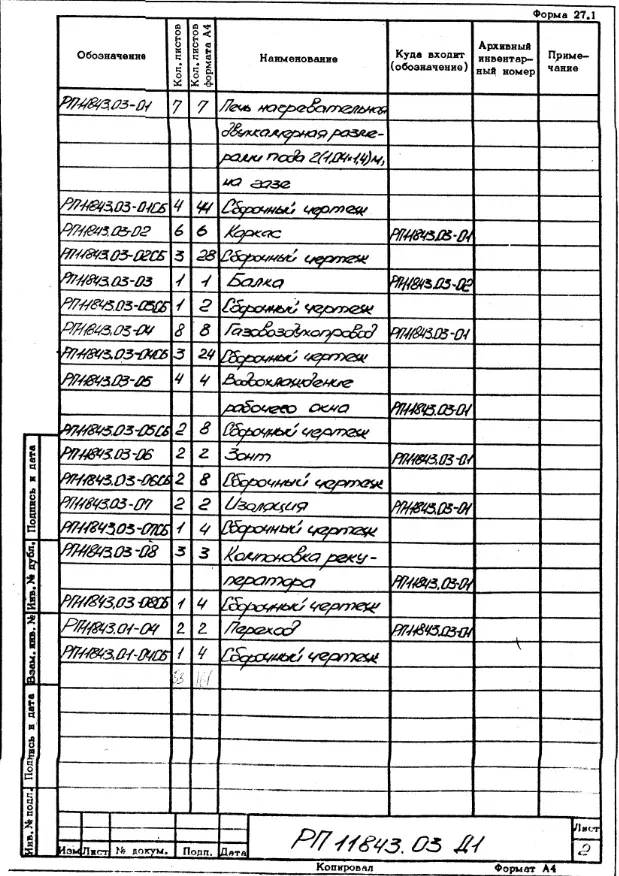 Форма 27.1
Обозначение Кол. листов Кол. листов формата А4 Наименование Куда входит (обозначение) Архивный инвентарный номер Примечание
РП11843.03-01 7 7 Печь нагревательная
двухкамерная разме-
рами пода 2(1,04×1,4)м,
на газе
РП11843.03-01СБ 4 44 Сборочный чертеж
РП11843.03-02 6 6 Каркас РП11843.03-01
РП11843.03-02СБ 3 28 Сборочный чертеж
РП11843.03-03 1 1 Балка РП11843.03-02
РП11843.03-03СБ 1 2 Сборочный чертеж
РП11843.03-04 8 8 Газовоздухопровод РП11843.03-01
РП11843.03-04СБ 3 24 Сборочный чертеж
РП11843.03-05 4 4 Водохлаждение
рабочего окна РП11843.03-01
РП11843.03-05СБ 2 8 Сборочный чертеж
РП11843.03-06 2 2 Зонт РП11843.03-01
РП11843.03-06СБ 2 8 Сборочный чертеж
РП11843.03-07 2 2 Изоляция РП11843.03-01
РП11843.03-07СБ 1 4 Сборочный чертеж
РП11843.03-08 3 3 Компоновка реку-
ператора РП11843.03-01
РП11843.03-08СБ 1 4 Сборочный чертеж
РП11843.01-04 2 2 Переход РП11843.03-01
РП11843.01-04СБ 1 4 Сборочный чертеж
Подпись и дата
Инв. № дубл.
Взам. инв. №
Подпись и дата
Инв. № подл.
РП 11843.03 Д1
Лист
2
Изм Лист № докум. Подп. Дата
Копировал Формат А4